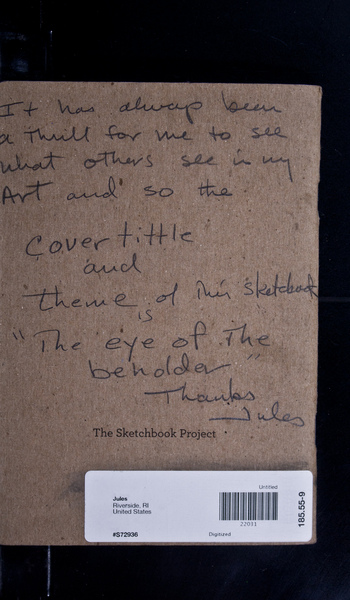 It has always been
a thrill for me to see
what others see in my
Art and so the
Cover tittle
and
theme of this sketchbook
is
"The eye of The
beholder"
Thanks
Jules
The Sketchbook Project
Untitled
Jules
Riverside, RI
United States
22011
185.55-9
#S72936
Digitized